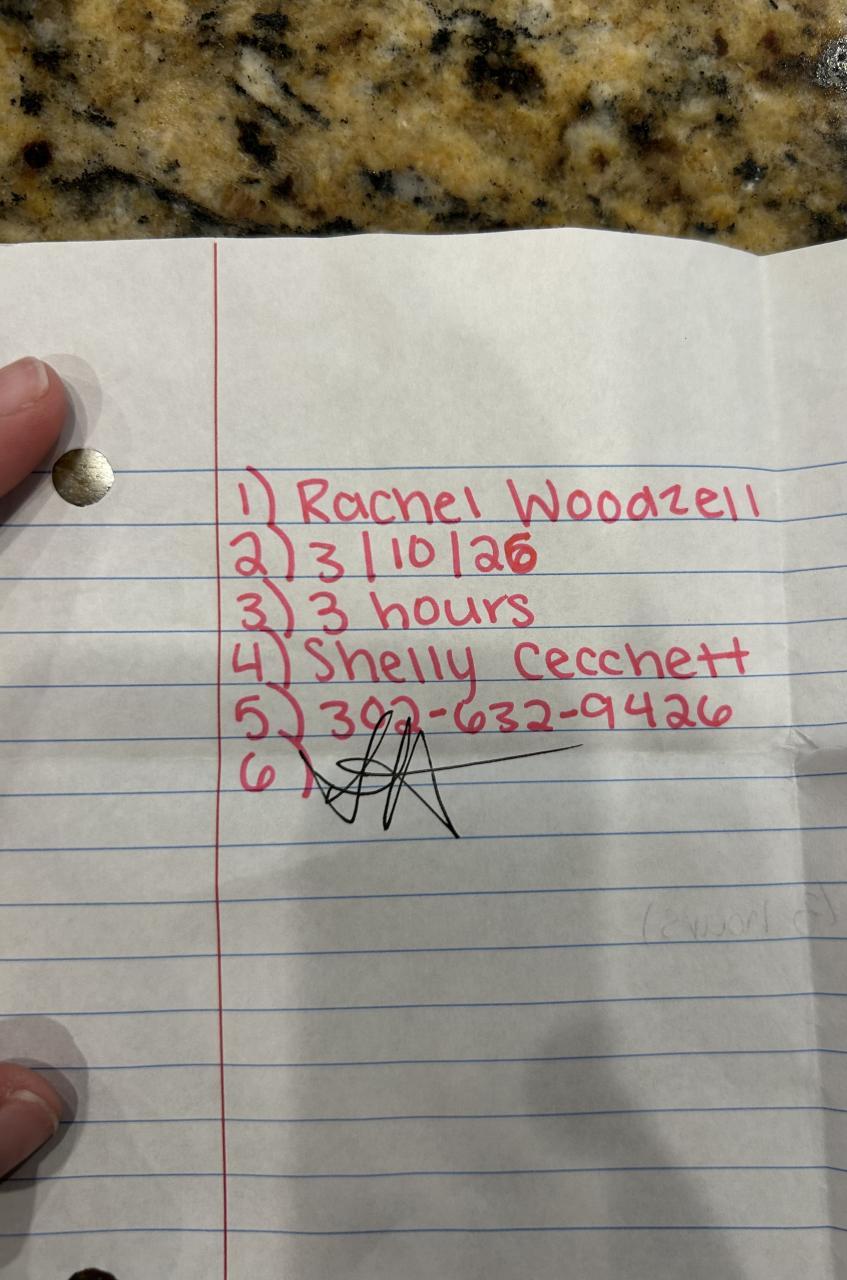 1) Rachel Woodzell
2) 3/10/26
3) 3 hours
4) Shelly Cecchett
5) 302-632-9426
6)